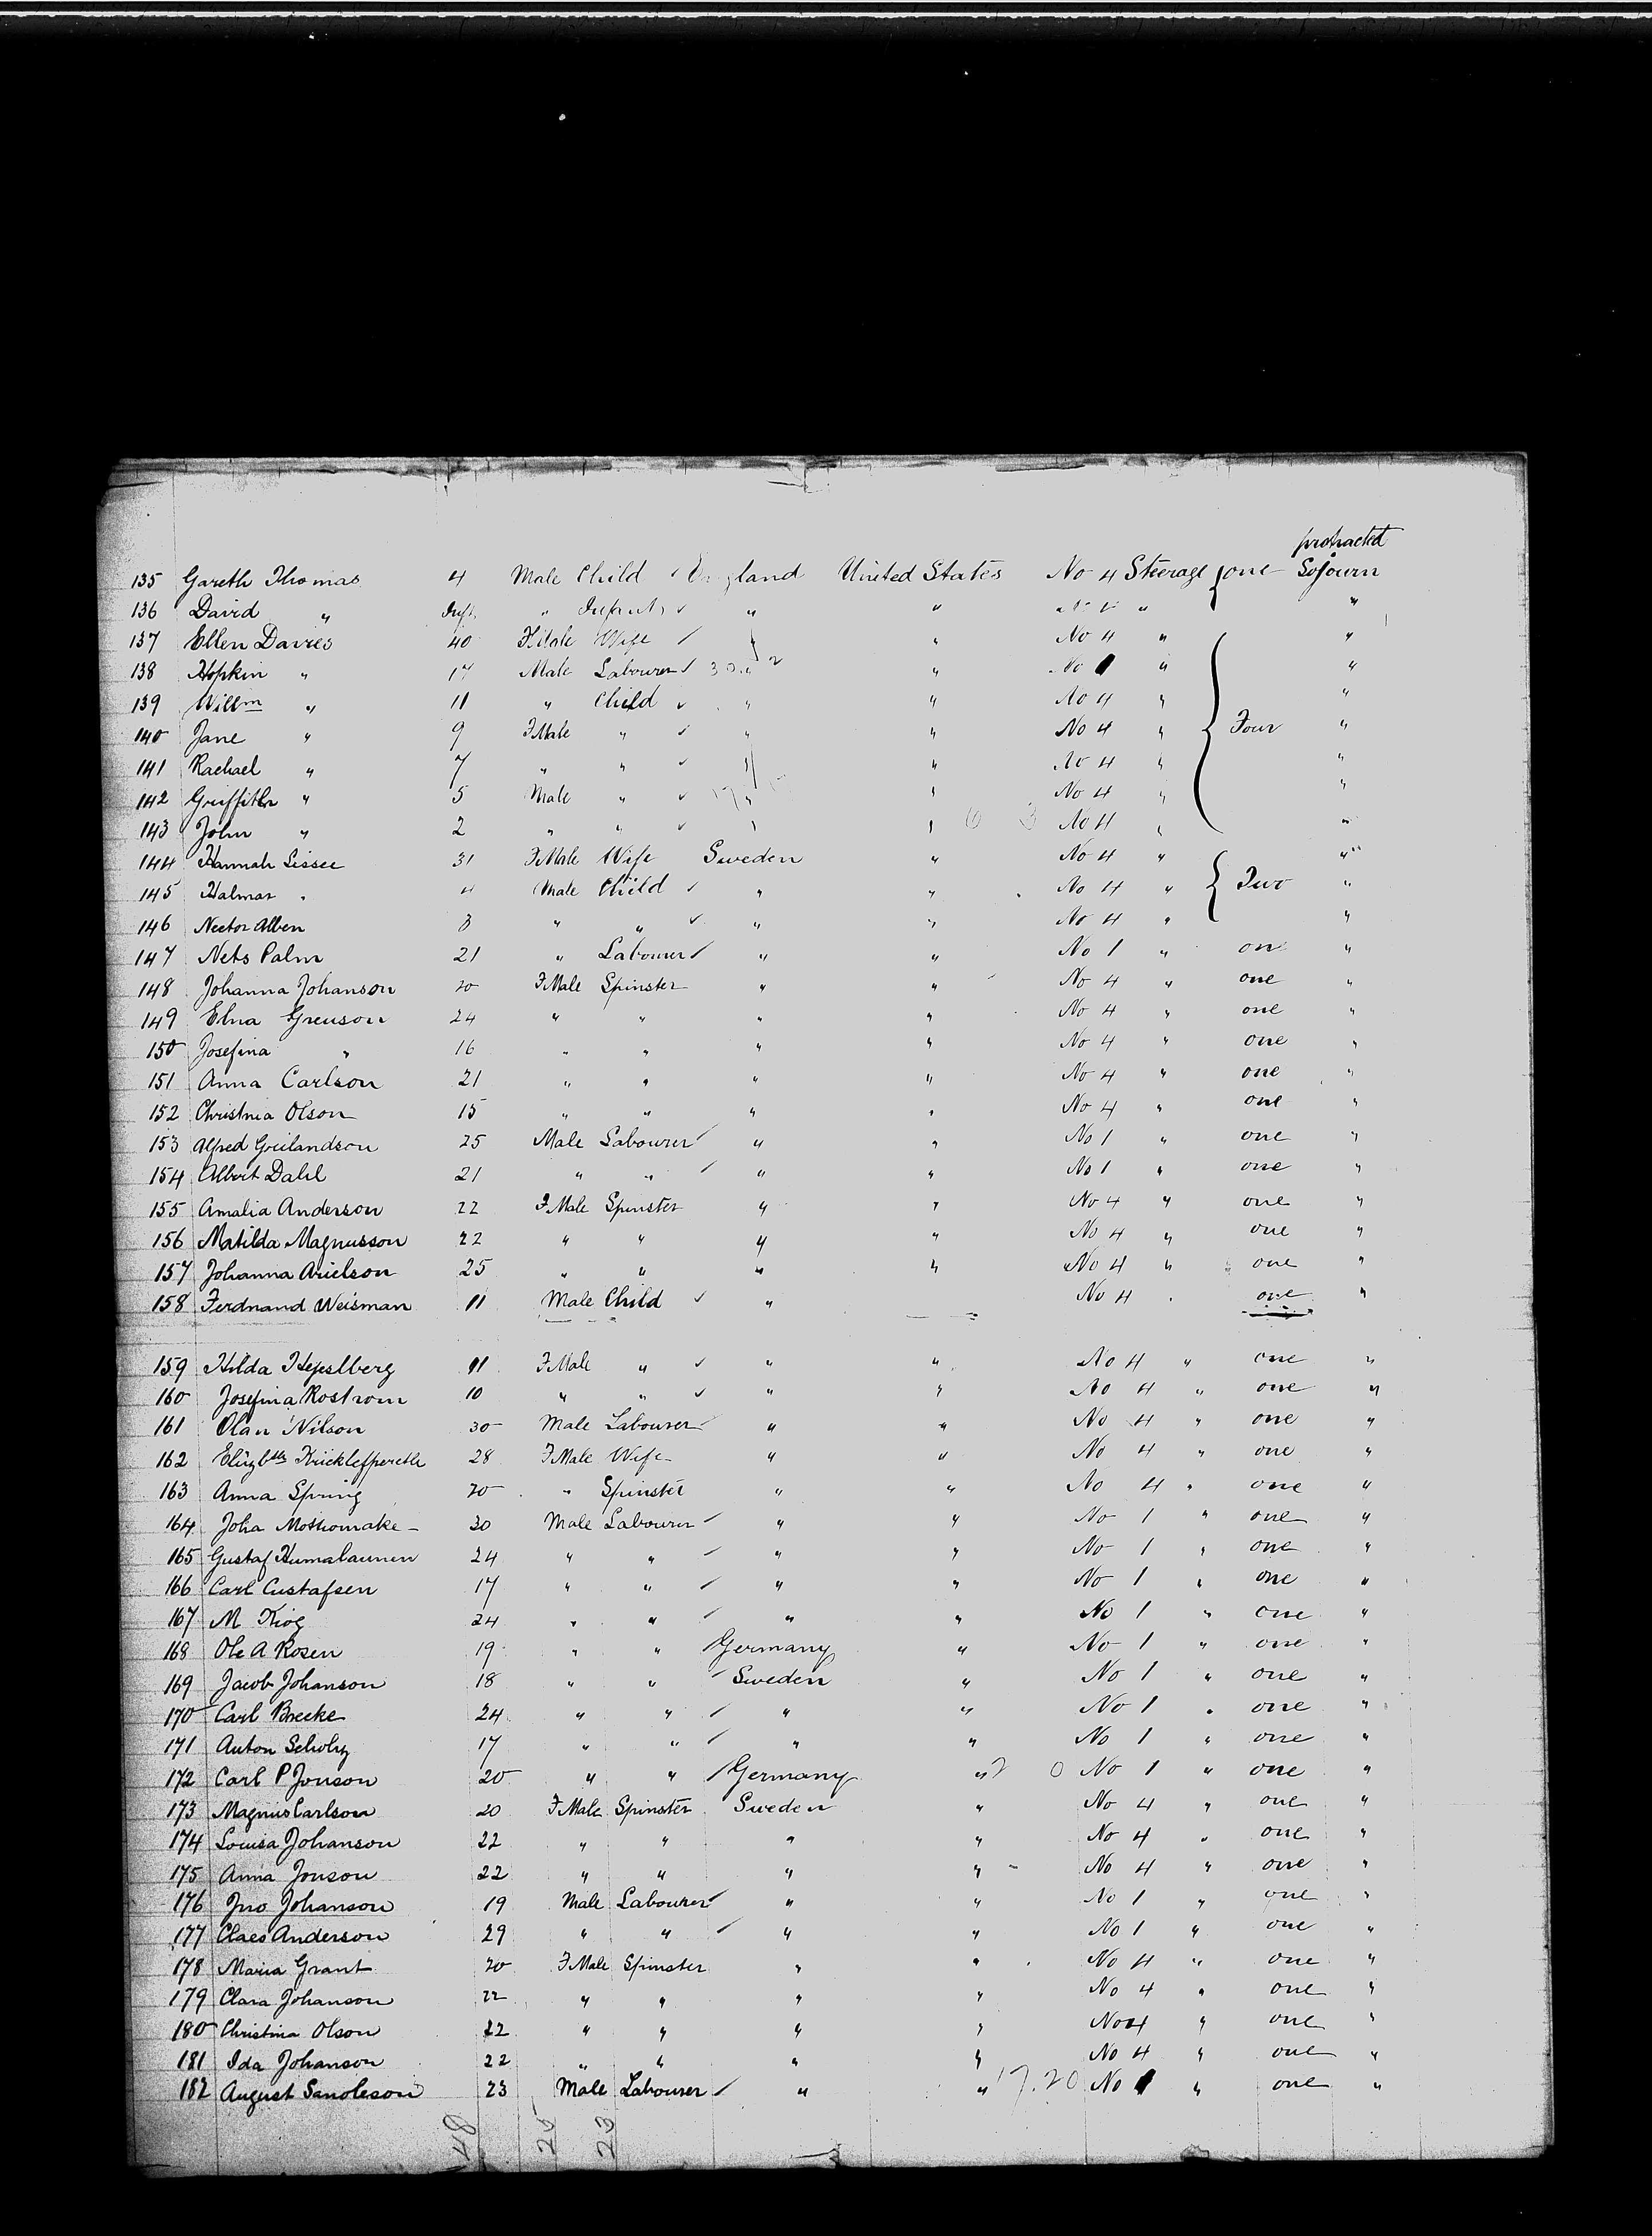 protracted
135 Gareth Thomas 4 Male Child England United States No 4 Steerage one Sojourn
136 David " Inft " Infant " " " "
137 Ellen Davies 40 FMale Wife " No 4 " "
138 Hopkin " 17 Male Labourer " " No 1 " "
139 Willm " 11 " Child " " No 4 " "
140 Jane " 9 FMale " " " No 4 " Four "
141 Rachael " 7 " " " " No 4 " "
142 Griffith " 5 Male " " " No 4 " "
143 John " 2 " " " " No 4 " "
144 Hannah Lissee 31 FMale Wife Sweden " No 4 " "
145 Halmar " 4 Male Child " " No 4 " Two "
146 Nector Alben 8 " " " " No 4 " "
147 Nets Palm 21 " Labourer " " No 1 " one "
148 Johanna Johanson 20 FMale Spinster " " No 4 " one "
149 Elna Greuson 24 " " " " No 4 " one "
150 Josefina " 16 " " " " No 4 " one "
151 Anna Carlson 21 " " " " No 4 " one "
152 Christina Olson 15 " " " " No 4 " one "
153 Alfred Greilandson 25 Male Labourer " " No 1 " one "
154 Albert Dahl 21 " " " " No 1 " one "
155 Amalia Anderson 22 FMale Spinster " " No 4 " one "
156 Matilda Magnusson 22 " " " " No 4 " one "
157 Johanna Arielson 25 " " " " No 4 " one "
158 Ferdnand Weisman 11 Male Child " No 4 " one "
159 Hilda 11 FMale " " " No 4 " one "
160 Josefina Rostrom 10 " " " " No 4 " one "
161 Olan Nilson 30 Male Labourer " " No 4 " one "
162 Elizbth 28 FMale Wife " " No 4 " one "
163 Anna Spring 20 " Spinster " " No 4 " one "
164 Joha Mothomake 30 Male Labourer " " No 1 " one "
165 Gustaf Humalaunen 24 " " " " No 1 " one "
166 Carl Custafsen 17 " " " " No 1 " one "
167 M Kiog 24 " " " " No 1 " one "
168 Ole A Rosen 19 " " Germany " No 1 " one "
169 Jacob Johanson 18 " " Sweden " No 1 " one "
170 Carl Breeke 24 " " " " No 1 " one "
171 Anton Scholz 17 " " " " No 1 " one "
172 Carl P Jonson 20 " " Germany " 2 0 No 1 " one "
173 Magnus Carlson 20 FMale Spinster Sweden " No 4 " one "
174 Louisa Johanson 22 " " " " No 4 " one "
175 Anna Jonson 22 " " " " No 4 " one "
176 Jno Johanson 19 Male Labourer " " No 1 " one "
177 Claes Anderson 29 " " " " No 1 " one "
178 Maria Grant 20 FMale Spinster " " No 4 " one "
179 Clara Johanson 22 " " " " No 4 " one "
180 Christina Olson 22 " " " " No 4 " one "
181 Ida Johanson 22 " " " " No 4 " one "
182 August Sanoleson 23 Male Labourer " " 17.20 No 1 " one "
48 25 23